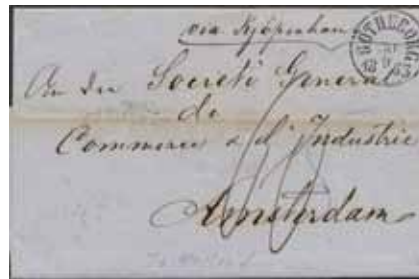 via Kjöpenhavn
GÖTHEBORG
An die Societé General
de
Commerce & d'Industrie
Amsterdam